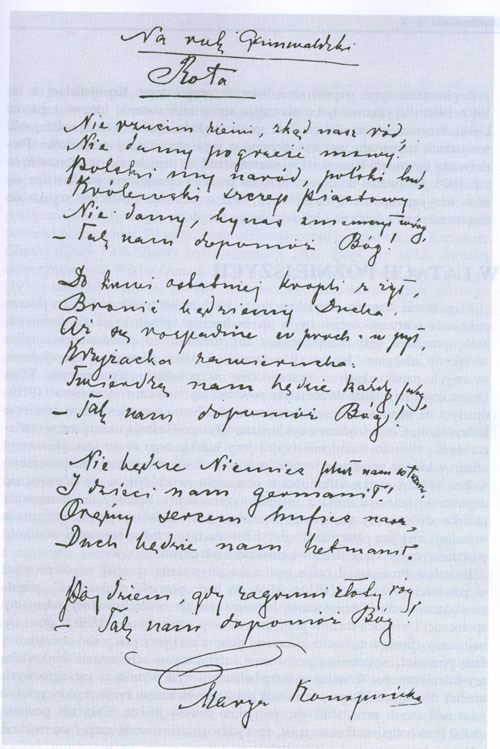 Na rok Grunwaldzki
Rota
Nie rzucim ziemi, skąd nasz ród,
Nie damy pogrześć mowy!
Polski my naród, polski lud,
Królewski szczep Piastowy.
Nie damy, by nas zniemczył wróg,
– Tak nam dopomóż Bóg!
Do krwi ostatniej kropli z żył,
Bronić będziemy Ducha,
Aż się rozpadnie w proch i w pył
Krzyżacka zawierucha.
Twierdzą nam będzie każdy próg,
– Tak nam dopomóż Bóg!
Nie będzie Niemiec pluł nam w twarz,
I dzieci nam germanił.
Orężny sercem hufiec nasz,
Duch będzie nam hetmanił.
Pójdziem, gdy zagrzmi złoty róg,
– Tak nam dopomóż Bóg
Marya Konopnicka